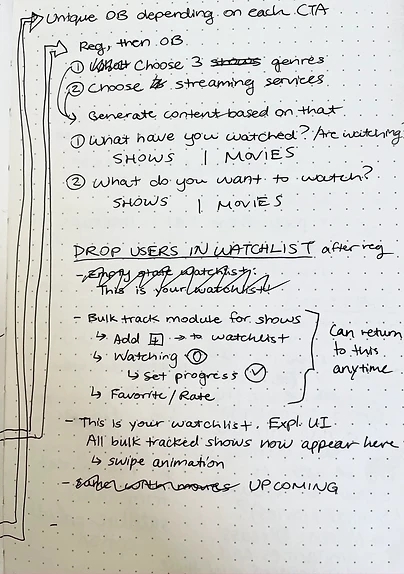 Unique OB depending on each CTA
Reg, then OB
① What Choose 3 shows genres
② Choose streaming services
Generate content based on that
① What have you watched? Are watching
SHOWS | MOVIES
② What do you want to watch?
SHOWS | MOVIES
DROP USERS IN WATCHLIST after reg
- Empty state watchlist:
This is your watchlist!
- Bulk track module for shows
↳ Add + → to watchlist
↳ Watching
↳ Set progress ✓
↳ Favorite/Rate
Can return
to this
anytime
- This is your watchlist. Expl. UI
All bulk tracked shows now appear here
↳ swipe animation
- with movies. UPCOMING